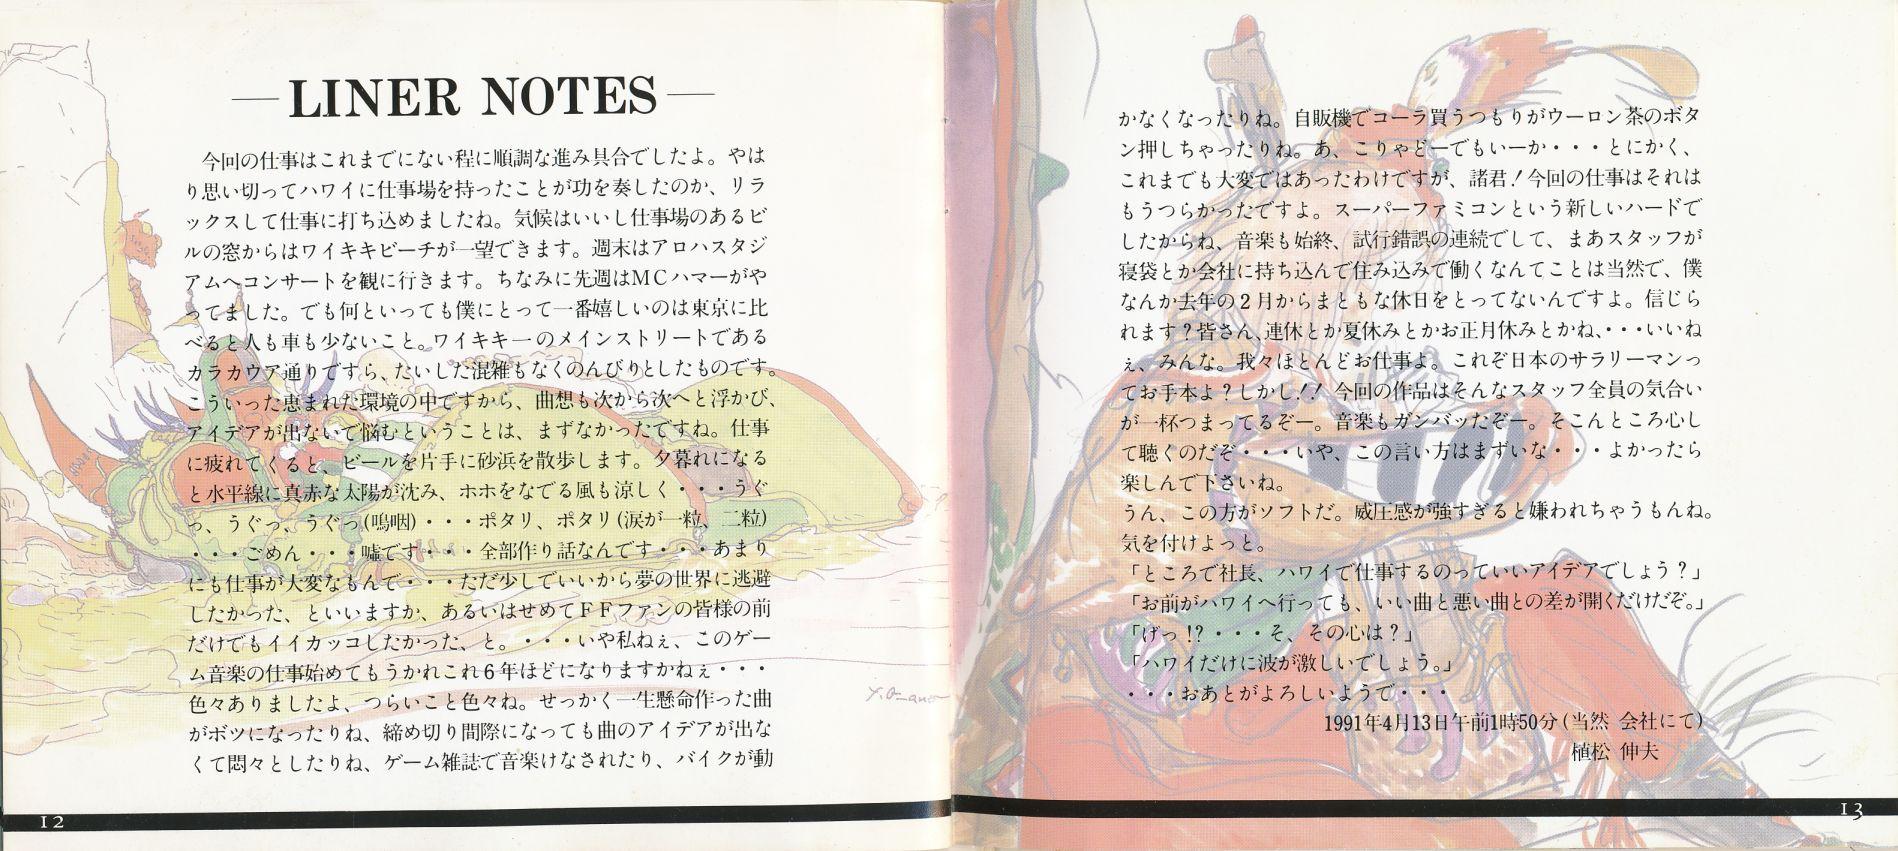 LINER NOTES
今回の仕事はこれまでにない程に順調な進み具合でしたよ。やは
り思い切ってハワイに仕事場を持ったことが功を奏したのか、リラ
ックスして仕事に打ち込めましたね。気候はいいし仕事場のあるビ
ルの窓からはワイキキビーチが一望できます。週末はアロハスタジ
アムへコンサートを観に行きます。ちなみに先週はMCハマーがや
ってました。でも何といっても僕にとって一番嬉しいのは東京に比
べると人も車も少ないこと。ワイキキーのメインストリートである
カラカウア通りですら、たいした混雑もなくのんびりとしたものです。
こういった恵まれた環境の中ですから、曲想も次から次へと浮かび、
アイデアが出ないで悩むということは、まずなかったですね。仕事
に疲れてくると、ビールを片手に砂浜を散歩します。夕暮れになる
と水平線に真赤な太陽が沈み、ホホをなでる風も涼しく・・・うぐ
っ、うぐっ、うぐっ(嗚咽)・・・ポタリ、ポタリ(涙が一粒、二粒)
・・・ごめん・・・嘘です・・・全部作り話なんです・・・あまり
にも仕事が大変なもんで・・・ただ少しでいいから夢の世界に逃避
したかった、といいますか、あるいはせめてFFファンの皆様の前
だけでもイイカッコしたかった、と。・・・いや私ねぇ、このゲー
ム音楽の仕事始めてもうかれこれ6年ほどになりますかねぇ・・・
色々ありましたよ、つらいこと色々ね。せっかく一生懸命作った曲
がボツになったりね、締め切り間際になっても曲のアイデアが出な
くて悶々としたりね、ゲーム雑誌で音楽けなされたり、バイクが動
12
かなくなったりね。自販機でコーラ買うつもりがウーロン茶のボタ
ン押しちゃったりね。あ、こりゃどーでもいーか・・・とにかく、
これまでも大変ではあったわけですが、諸君!今回の仕事はそれは
もうつらかったですよ。スーパーファミコンという新しいハードで
したからね、音楽も始終、試行錯誤の連続でして、まあスタッフが
寝袋とか会社に持ち込んで住み込みで働くなんてことは当然で、僕
なんか去年の2月からまともな休日をとってないんですよ。信じら
れます?皆さん、連休とか夏休みとかお正月休みとかね、・・・いいね
ぇ、みんな。我々ほとんどお仕事よ。これぞ日本のサラリーマンっ
てお手本よ?しかし!!今回の作品はそんなスタッフ全員の気合い
が一杯つまってるぞー。音楽もガンバッたぞー。そこんところ心し
て聴くのだぞ・・・いや、この言い方はまずいな・・・よかったら
楽しんで下さいね。
うん、この方がソフトだ。威圧感が強すぎると嫌われちゃうもんね。
気を付けよっと。
「ところで社長、ハワイで仕事するのっていいアイデアでしょう?」
「お前がハワイへ行っても、いい曲と悪い曲との差が開くだけだぞ。」
「げっ!?・・・そ、その心は?」
「ハワイだけに波が激しいでしょう。」
・・・おあとがよろしいようで・・・
1991年4月13日午前1時50分(当然 会社にて)
植松 伸夫
13